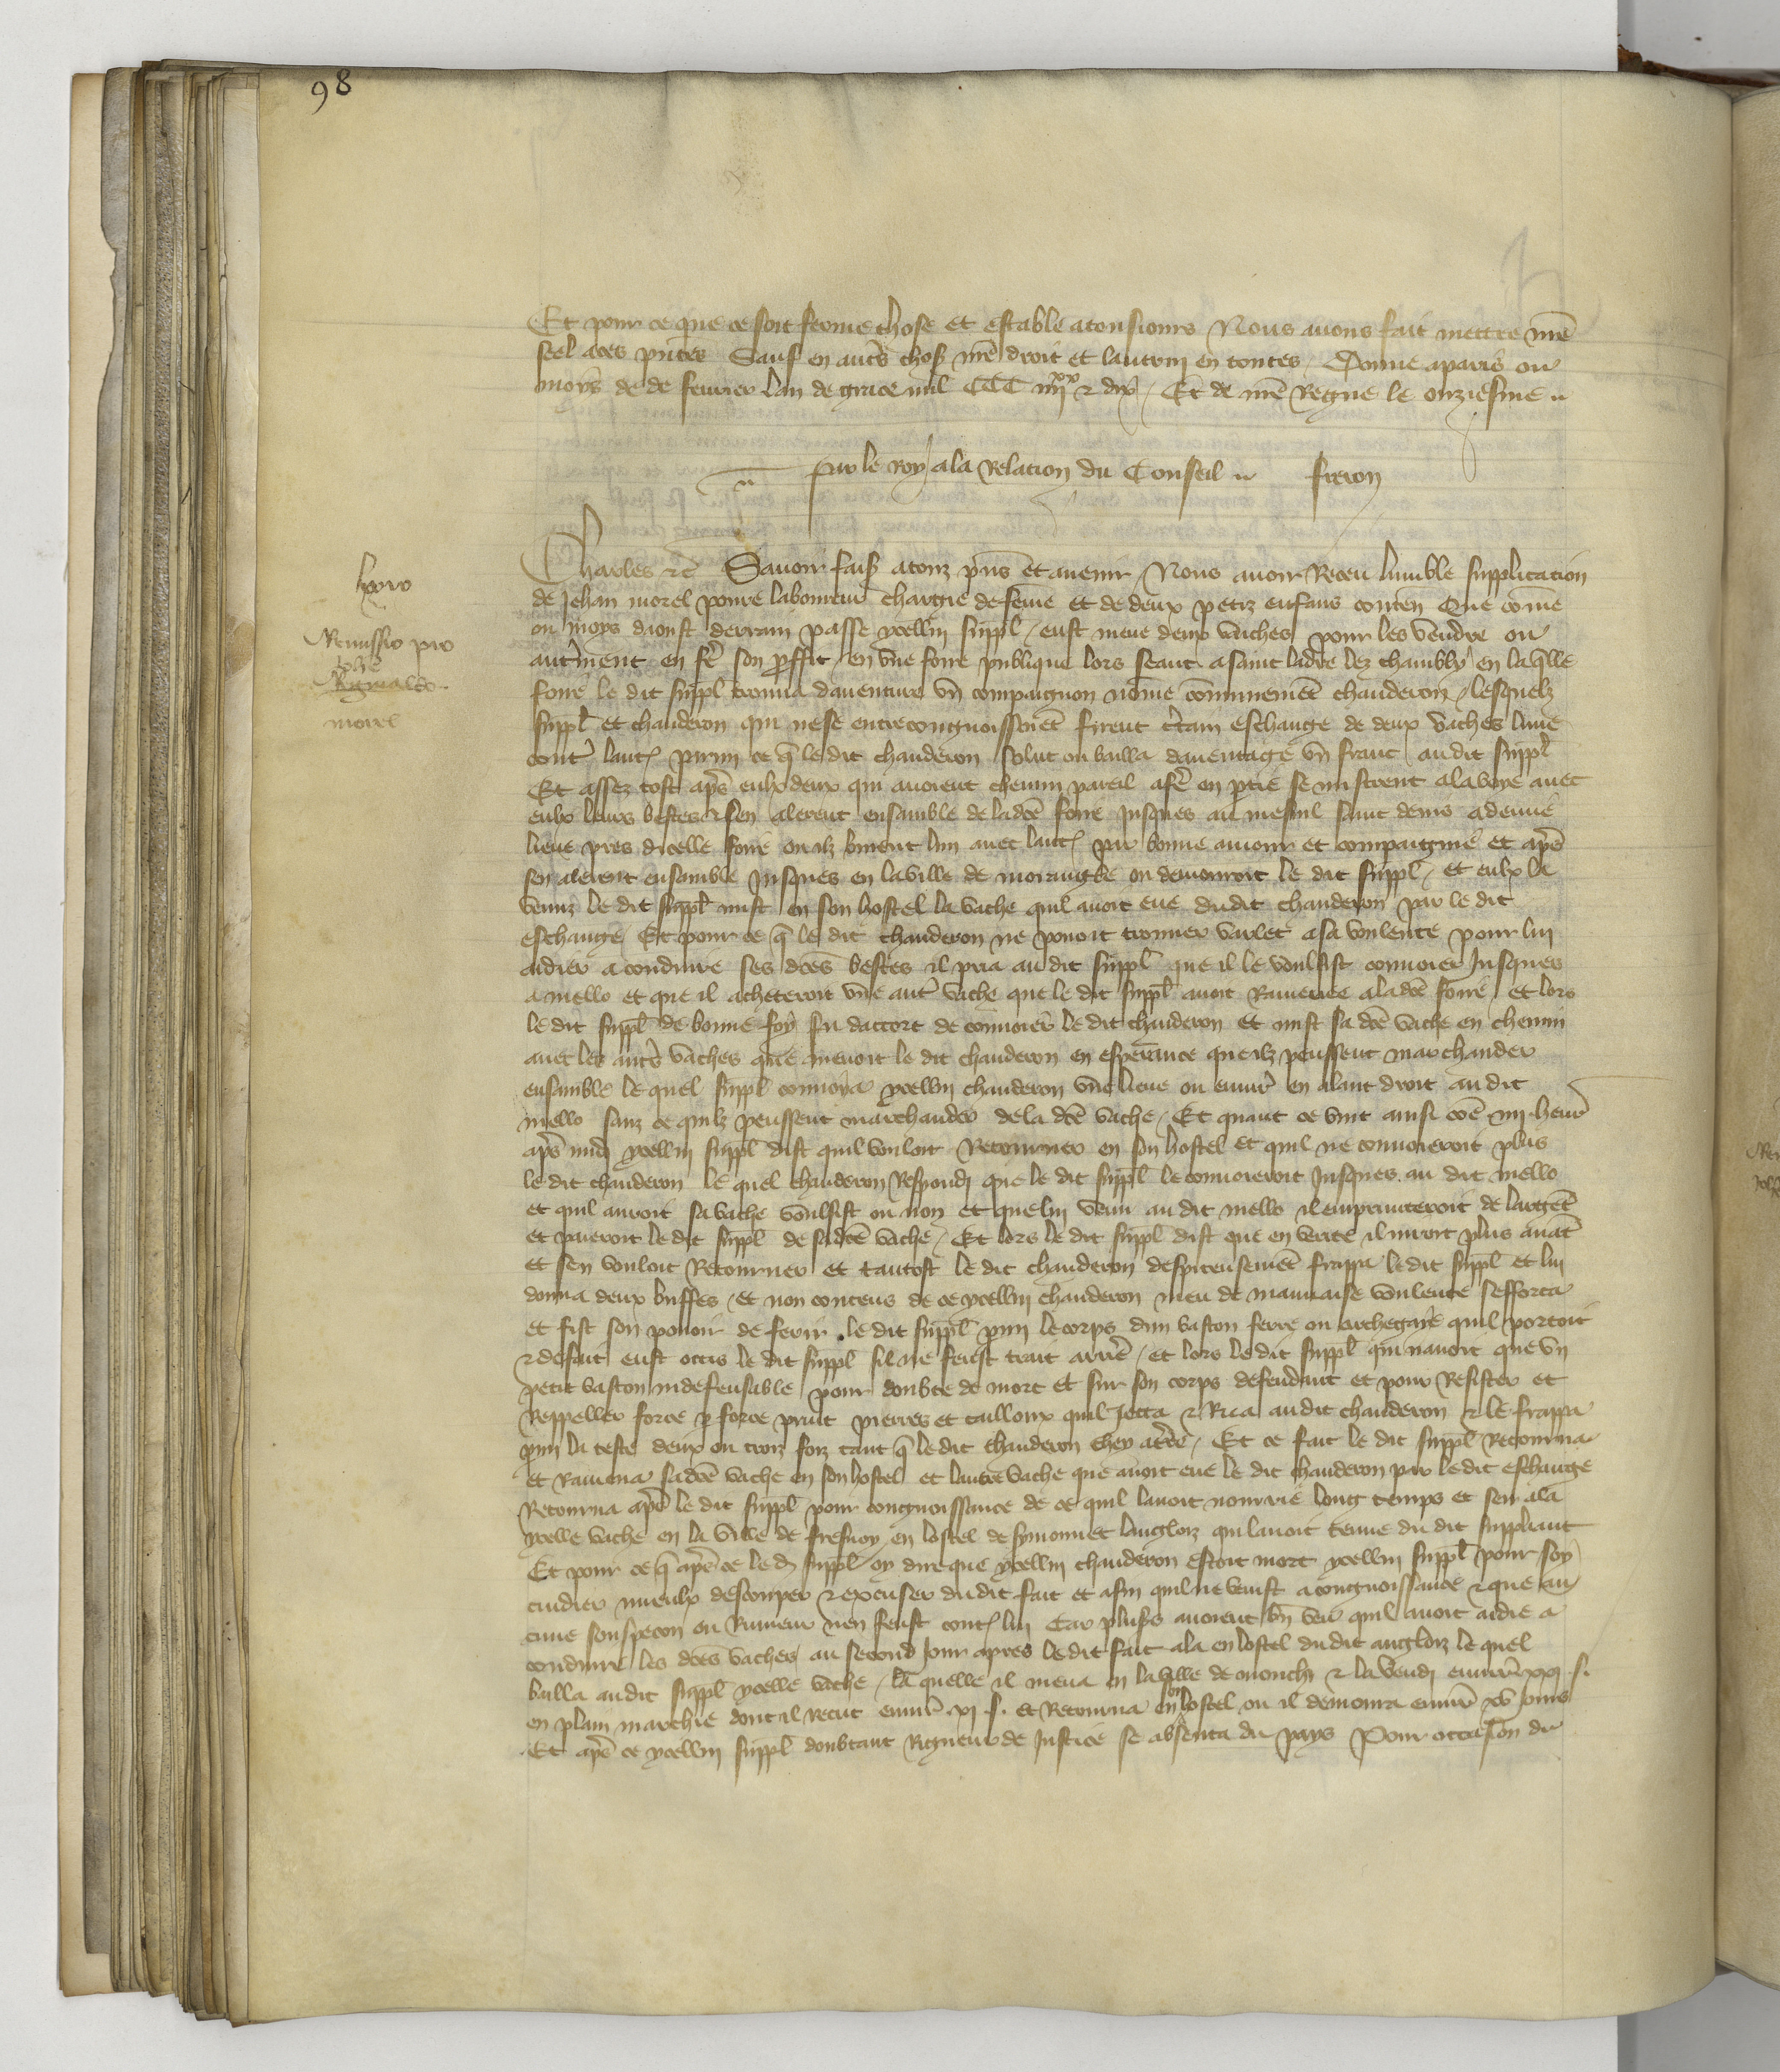 98
Et pour ce que ce soit ferme chose et estable atousiours Nous auons fait mettre nr̄e
seel aces pn̄tes Sauf en autr̄s chos nr̄e droit et lautruy en toutes / Donne aparis ou
moys de de feurier lan de grace mil CCC iiii xx & dix / Et de nr̄e Regne le onziesme
par le Roy ala Relacion du Conseil freron
Charles &c̄ Sauoir fais atouz pn̄s et auenir / Nous auoir Receu lumble supplicacion
de Jehan morel poure laboureur chargie de feme et de deux petiz enfans conten Que come
ou moys daoust derrain passe ycellui suppl̄ / eust mene deux vaches pour les vendre ou
autr̄ment en fr̄e son proffit / en vne foire publique lors seant asaint ladre lez chambly en laq̄lle
foire le dit suppl̄ trouua dauenture vn compaignon nome comunemēt chauderon / lesquelz
suppl̄ et chauderon qui nese entrecongnoissoiēt firent c̄tain eschange de deux vaches lune
contr̄ laut̄ parmi ce q̄ le dit chauderon solut ou bailla dauentage vn franc au dit suppl̄
Et assez tost apr̄s eulx deux qui auoient chemin pareil afr̄e en p̄tie se mistrent alavoye auec
eulx leurs bestes & sen alerent ensamble de ladc̄e foire Jusques au mesnil saint denis ademie
lieue pres dicelle foire ou ilz burent lun auec laut̄ par bonne amour et compaignie et apr̄s
sen alerent ensamble Jusques en laville de morangle ou demouroit le dit suppl̄ / et eulx la
venuz le dit suppl̄ mist en son hostel la vache quil auoit eue dudit chauderon par le dit
eschange Et pour ce q̄ le dit chauderon ne pouoit trouuer varlet asa voulente pour lui
aidier aconduire ses dc̄es bestes il pria audit suppl̄ que il le voulsist conuoier Jusques
amello et que il acheteroit vne aut̄ vache que le dit suppl̄ auoit Ramenee aladc̄e foire / et lors
le dit suppl̄ de bonne foy fu daccort de conuoier le dit chauderon et mist sa dc̄e vache en chemin
auec les autr̄s vaches que menoit le dit chauderon en esperance que ilz peussent marchander
ensamble le quel suppl̄ conuoya ycellui chauderon vne lieue ou enuir̄ en alant droit au dit
mello sanz ce quilz peussent marchander dela dc̄e vache / Et quant ce vint ainsi cōe iiii heur̄
apr̄s midi ycellui suppl̄ dist quil vouloit Retourner en son hostel et quil ne conuoieroit plus
le dit chauderon le quel chauderon Respondi que le dit suppl̄ le conuoieroit Jusques au dit mello
et quil auroit sa vache voulsist ou non et quelui venu au dit mello il emprunteroit de largēt
et paieroit le dit suppl̄ de sadc̄e vache / Et lors le dit suppl̄ dist que en verite il niroit plus auāt
et sen vouloit Retourner et tantost le dit chauderon despiteusemēt frappa le dit suppl̄ et lui
donna deux buffes / et non contens de ce ycellui chauderon meu de mauuaise voulente sefforca
et fist son pouoir de ferir le dit suppl̄ p̄mi le corps dun baston ferre ou archegaie quil portoit
& defait eust occis le dit suppl̄ sil ne feust trait arrr̄e / et lors le dit suppl̄ qui nauoit que vn
petit baston indefensable pour doubte de mort et sur son corps defendant et pour Resister et
Reppeller force p̄ force print pierres et cailloux quil Jecta & Rua audit chauderon & le frappa
p̄mi la teste deux ou troiz foiz tant q̄ le dit chauderon chey at̄re / Et ce fait le dit suppl̄ Retourna
et Ramena sadc̄e vache en son hostel et lautre vache que auoit eue le dit chauderon par ledit eschange
Retourna apr̄s le dit suppl̄ pour congnoissance de ce quil lauoit nourrie long temps et sen ala
ycelle vache en la ville de fresnoy en lostel de symonnet langloiz qui lauoit tenue du dit suppliant
Et pour ce q̄ apr̄s ce le d suppl̄ oy dire que ycellui chauderon estoit mort ycellui suppl̄ pour soy
cuidier mieulx descouper & excuser dudit fait et afin quil ne venist acongnoissance & que au
cune souspecon ou Rumeur nen feust cont̄ lui Car plus̄s auoient bn̄ veu quil auoit aidie a
conduire les dc̄es vaches au second Jour apres ledit fait ala en lostel dudit angloiz le quel
bailla audit suppl̄ ycelle vache / la quelle il mena en la ville de monchi & la vendi enuir̄ xxi s.
en plain marchie dont il recut enuir̄ xi s. et Retourna en son hostel ou il demoura enuir̄ xv Jours
Et apr̄s ce ycellui suppl̄ doubtant Rigueur de Justice se absenta du pays Pour occasion du
Remissio pro
Joh̄e
Reginaldo
morel